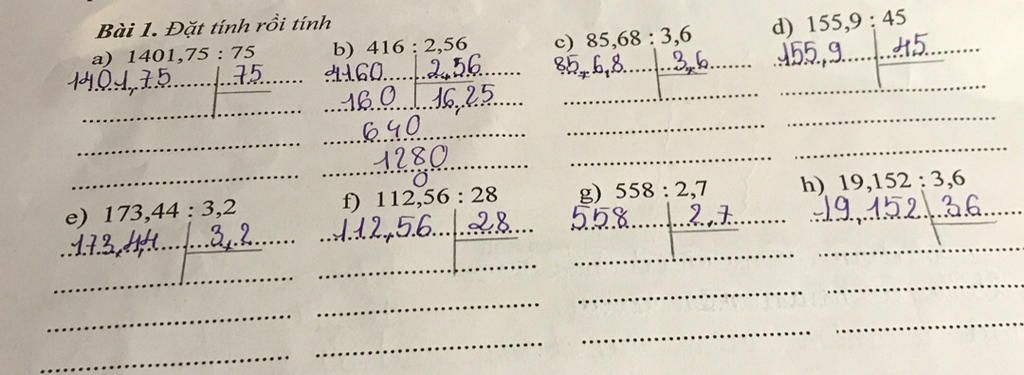 Bài 1. Đặt tính rồi tính
a) 1401,75 : 75
b) 416 : 2,56
c) 85,68 : 3,6
d) 155,9 : 45
1401,75 75
4160 2,56
85,6,8 3,6
155,9 45
160 16,25
640
1280
0
e) 173,44 : 3,2
f) 112,56 : 28
g) 558 : 2,7
h) 19,152 : 3,6
173,4,4 3,2
112,56 28
558 2,7
19,152 36